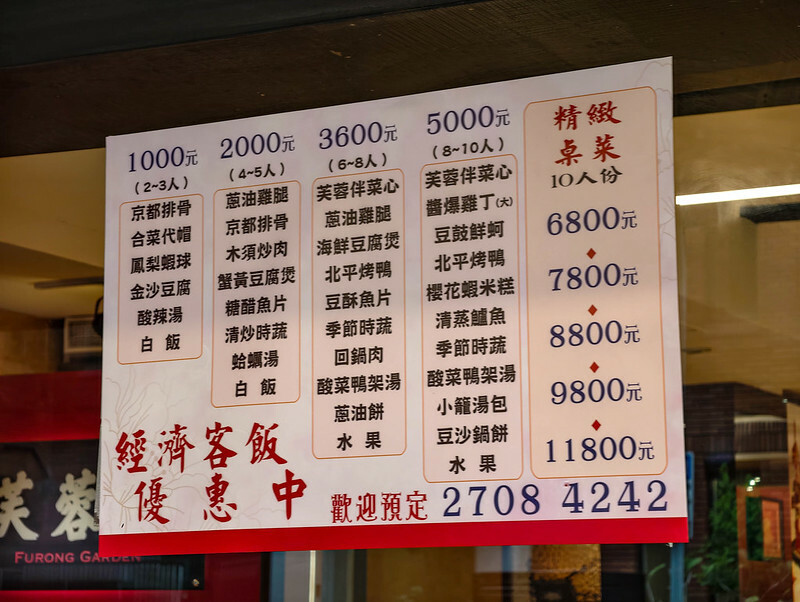 1000元
(2~3人)
京都排骨
合菜代帽
鳳梨蝦球
金沙豆腐
酸辣湯
白飯
2000元
(4~5人)
蔥油雞腿
京都排骨
木須炒肉
蟹黃豆腐煲
糖醋魚片
清炒時蔬
蛤蠣湯
白飯
3600元
(6~8人)
芙蓉伴菜心
蔥油雞腿
海鮮豆腐煲
北平烤鴨
豆酥魚片
季節時蔬
回鍋肉
酸菜鴨架湯
蔥油餅
水果
5000元
(8~10人)
芙蓉伴菜心
醬爆雞丁(大)
豆鼓鮮蚵
北平烤鴨
櫻花蝦米糕
清蒸鱸魚
季節時蔬
酸菜鴨架湯
小籠湯包
豆沙鍋餅
水果
精緻
桌菜
10人份
6800元
7800元
8800元
9800元
11800元
經濟客飯
優惠中
歡迎預定 2708 4242
芙蓉
FURONG GARDEN